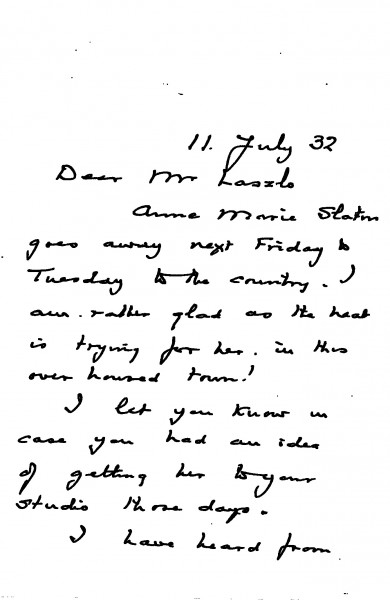 11. July 32
Dear Mr Laszlo
Anne Marie Slatin
goes away next Friday to
Tuesday to the country. I
am. rather glad as the heat
is trying for her. in this
over housed town!
I let you know in
case you had an idea
of getting her to your
studio those days.
I have heard from